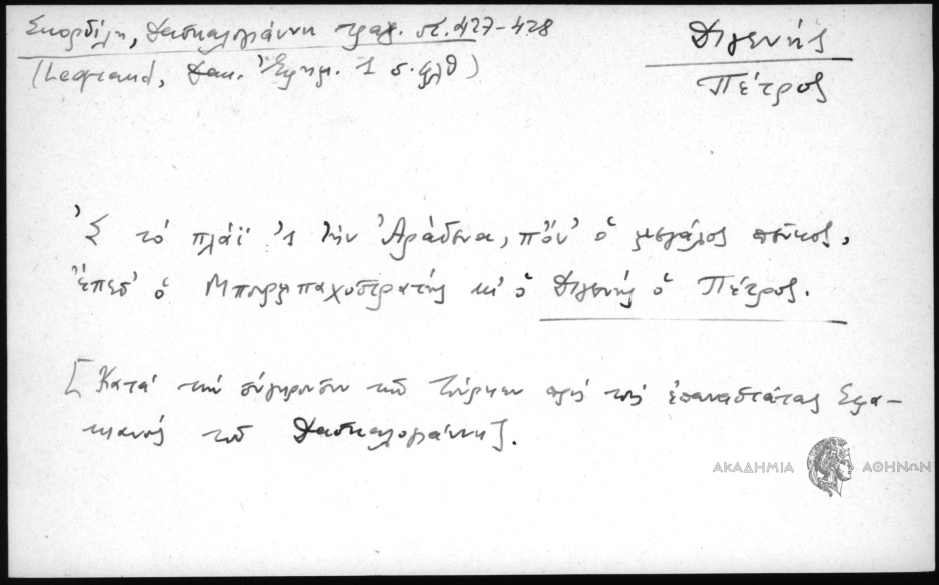 Σκορδίλη, Δασκαλογιάννη τραγ. στ. 427-428
(Legrand, Δακ. Ἐφημ. 1 σ. φλθ)
Διγενής
Πέτρος
Ἐς τὸ πλάϊ 'ς τὴν Ἀράδενα, πὄν' ὁ μεγάλος πεῦκος,
ἔπεσ' ὁ Μπουρμπαχυστρατής κι ὁ Διγενής ὁ Πέτρος.
[Κατὰ τὴν σύγκρουσιν τῶν Τούρκων πρὸς τοὺς ἐπαναστάτας Σφα-
κιανοὺς τοῦ Δασκαλογιάννη].
ΑΚΑΔΗΜΙΑ ΑΘΗΝΩΝ